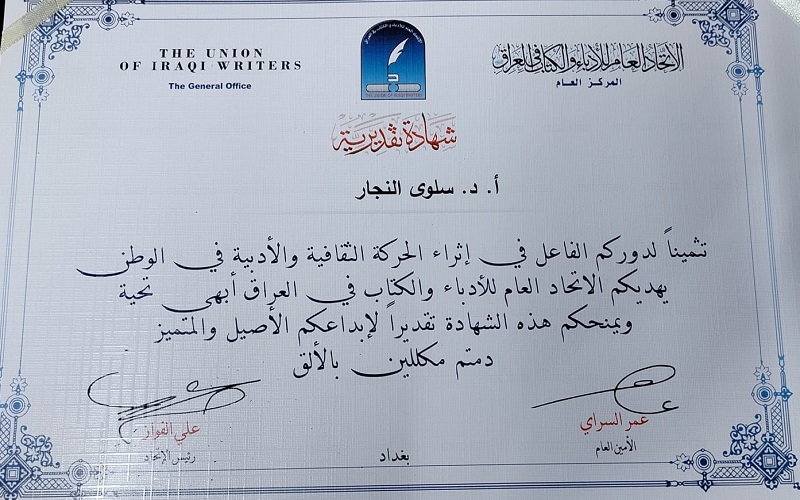 THE UNION
OF IRAQI WRITERS
The General Office
الاتحاد العام للأدباء والكتاب في العراق
المركز العام
THE UNION OF IRAQI WRITERS
شهادة تقديرية
أ. د. سلوى النجار
تثميناً لدوركم الفاعل في إثراء الحركة الثقافية والأدبية في الوطن
يهديكم الاتحاد العام للأدباء والكتاب في العراق أبهى تحية
ويمنحكم هذه الشهادة تقديراً لإبداعكم الأصيل والمتميز
دمتم مكللين بالألق
عمر السراي
الأمين العام
بغداد
علي الفواز
رئيس الإتحاد